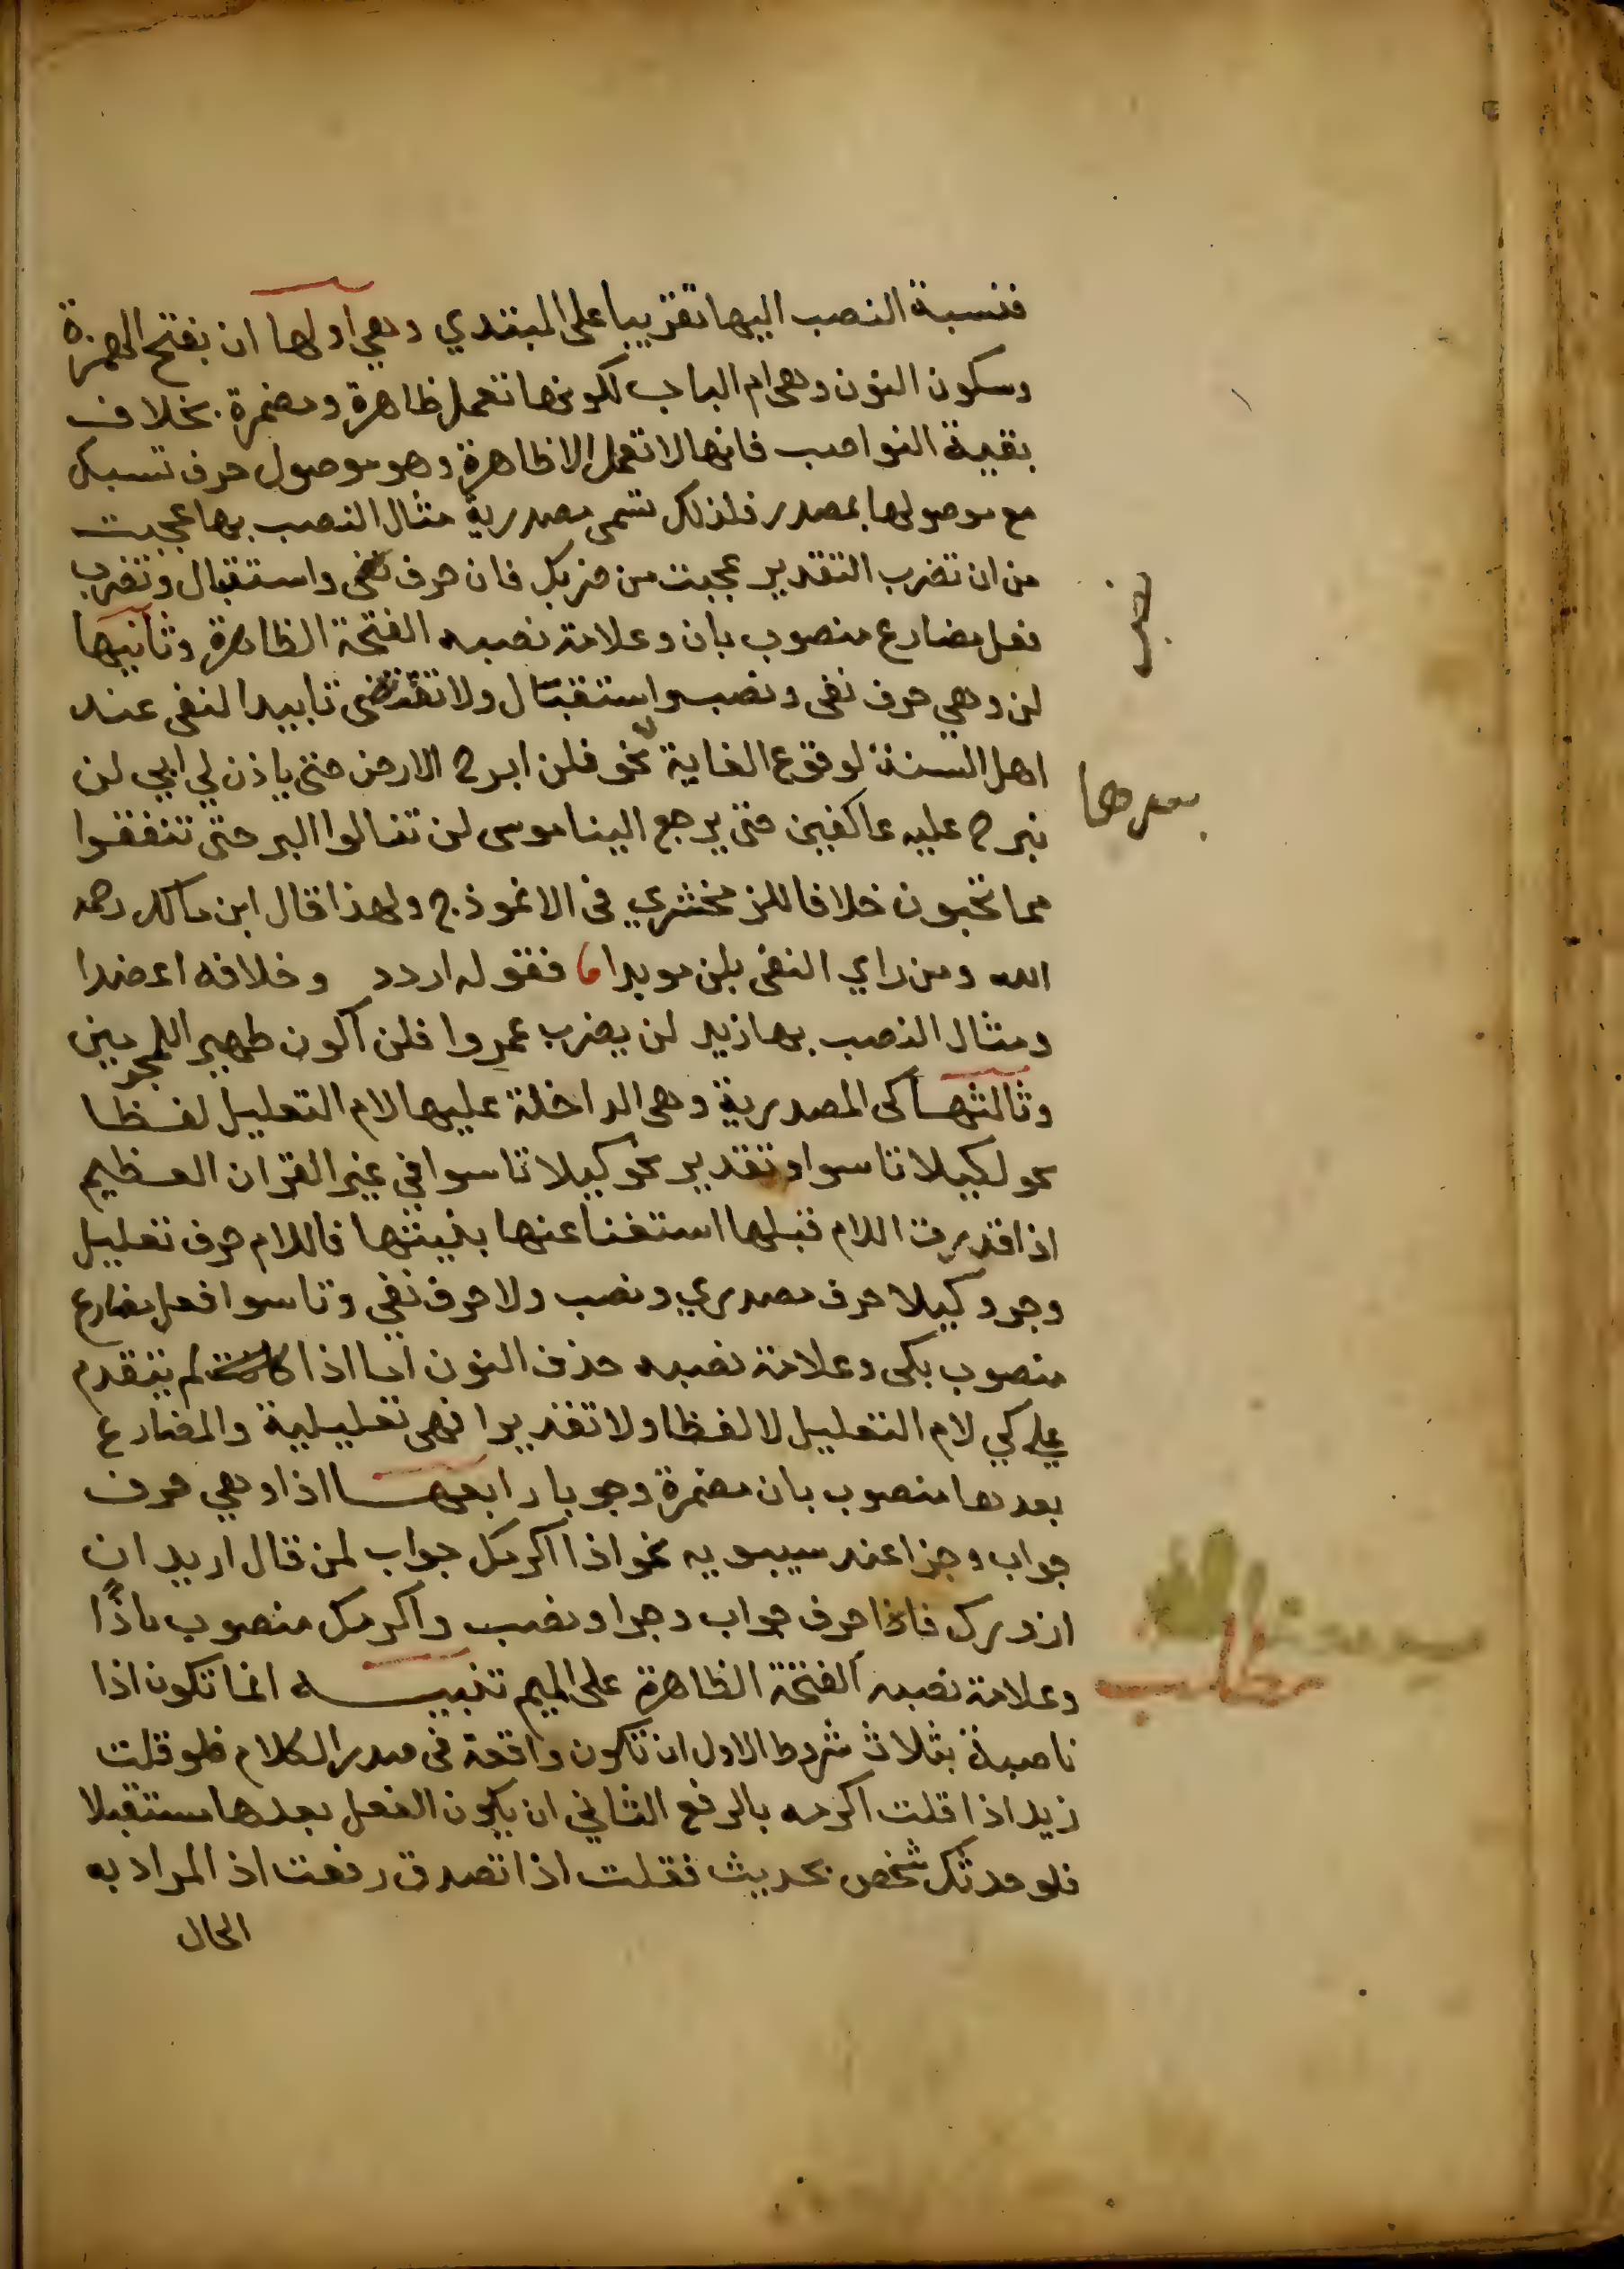 فنسبة النصب اليها تقريبا على المبتدي وهي اولها ان بفتح الهمزة
وسكون النون وهى ام الباب لكونها تعمل ظاهرة ومضمرة بخلاف
بقية النواصب فانها لا تعمل الا ظاهرة وهو موصول حرف تسبك
مع موصولها بمصدر فلذلك تسمى مصدرية مثال النصب بها عجبت
من ان تضرب التقدير عجبت من ضربك فان حرف نفى واستقبال وتضرب
نصب
فعل مضارع منصوب بان وعلامة نصبه الفتحة الظاهرة وثانيها
لن وهي حرف نفى ونصب واستقبال ولا تقتضى تابيد النفى عند
اهل السنة لوقوع الغاية نحو فلن ابرح الارض حتى ياذن لي ابي لن
بعدها
نبرح عليه عاكفين حتى يرجع الينا موسى لن تنالوا البر حتى تنفقوا
مما تحبون خلافا للزمخشري فى الانموذج ولهذا قال ابن مالك رحمه
الله ومن راي النفى بلن موبدا فقوله اردد وخلافه اعضدا
ومثال النصب بها زيد لن يضرب عمروا فلن اكون ظهيرا للمجرمين
وثالثها كى المصدرية وهى الداخلة عليها لام التعليل لفظا
نحو لكيلا تاسوا وتقدير نحو كيلا تاسوا في غير القران العظيم
اذا قدرت اللام قبلها استغنا عنها بنيتها فاللام حرف تعليل
وجر وكيلا حرف مصدري ونصب ولا حرف نفي وتاسوا فعل مضارع
منصوب بكى وعلامة نصبه حذف النون اما اذا لم يتقدم
على كي لام التعليل لا لفظا ولا تقديرا فهى تعليلية والمضارع
بعدها منصوب بان مضمرة وجوبا رابعها اذا وهي حرف
جواب وجزا عند سيبويه نحو اذا اكرمك جواب لمن قال اريد ان
ازورك فاذا حرف جواب وجزا ونصب واكرمك منصوب باذًا
وعلامة نصبه الفتحة الظاهرة على الميم تنبيه انما تكون اذا
مطلب
ناصبة بثلاث شروط الاول ان تكون واقعة فى صدر الكلام فلو قلت
زيد اذا قلت اكرمه بالرفع الثاني ان يكون الفعل بعدها مستقبلا
فلو حدثك شخص بحديث فقلت اذا تصدق رفعت اذ المراد به
الحال